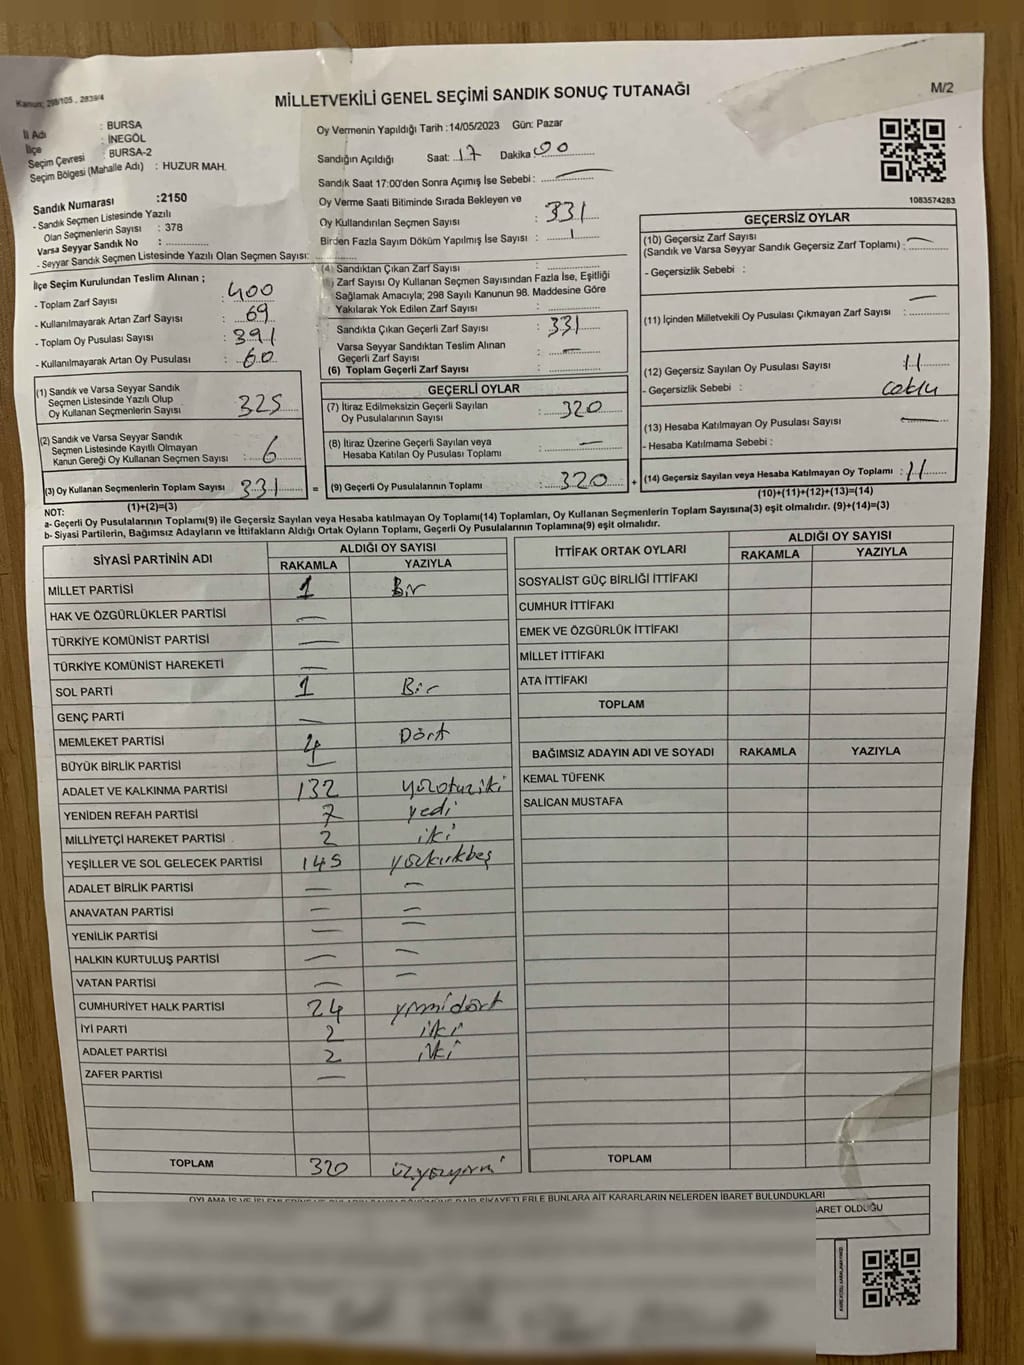 Kanun; 298/105 . 2839/4
MİLLETVEKİLİ GENEL SEÇİMİ SANDIK SONUÇ TUTANAĞI
M/2
İl Adı : BURSA
İlçe : İNEGÖL
Seçim Çevresi : BURSA-2
Seçim Bölgesi (Mahalle Adı) : HUZUR MAH.
Sandık Numarası :2150
- Sandık Seçmen Listesinde Yazılı
Olan Seçmenlerin Sayısı : 378
Varsa Seyyar Sandık No :
- Seyyar Sandık Seçmen Listesinde Yazılı Olan Seçmen Sayısı:
İlçe Seçim Kurulundan Teslim Alınan ;
- Toplam Zarf Sayısı : 400
- Kullanılmayarak Artan Zarf Sayısı : 69
- Toplam Oy Pusulası Sayısı : 391
- Kullanılmayarak Artan Oy Pusulası : 60
(1) Sandık ve Varsa Seyyar Sandık
Seçmen Listesinde Yazılı Olup
Oy Kullanan Seçmenlerin Sayısı 325
(2) Sandık ve Varsa Seyyar Sandık
Seçmen Listesinde Kayıtlı Olmayan
Kanun Gereği Oy Kullanan Seçmen Sayısı : 6
(3) Oy Kullanan Seçmenlerin Toplam Sayısı 331 =
(1)+(2)=(3)
Oy Vermenin Yapıldığı Tarih :14/05/2023 Gün: Pazar
Sandığın Açıldığı Saat: 17 Dakika 00
Sandık Saat 17:00'den Sonra Açılmış İse Sebebi :
Oy Verme Saati Bitiminde Sırada Bekleyen ve
Oy Kullandırılan Seçmen Sayısı : 331
Birden Fazla Sayım Döküm Yapılmış İse Sayısı : 1
(4) Sandıktan Çıkan Zarf Sayısı :
Zarf Sayısı Oy Kullanan Seçmen Sayısından Fazla İse, Eşitliği
Sağlamak Amacıyla; 298 Sayılı Kanunun 98. Maddesine Göre
Yakılarak Yok Edilen Zarf Sayısı :
Sandıkta Çıkan Geçerli Zarf Sayısı : 331
Varsa Seyyar Sandıktan Teslim Alınan
Geçerli Zarf Sayısı : —
(6) Toplam Geçerli Zarf Sayısı :
GEÇERLİ OYLAR
(7) İtiraz Edilmeksizin Geçerli Sayılan
Oy Pusulalarının Sayısı : 320
(8) İtiraz Üzerine Geçerli Sayılan veya
Hesaba Katılan Oy Pusulası Toplamı : —
(9) Geçerli Oy Pusulalarının Toplamı : 320 +
1083574283
GEÇERSİZ OYLAR
(10) Geçersiz Zarf Sayısı
(Sandık ve Varsa Seyyar Sandık Geçersiz Zarf Toplamı) : —
- Geçersizlik Sebebi :
(11) İçinden Milletvekili Oy Pusulası Çıkmayan Zarf Sayısı : —
(12) Geçersiz Sayılan Oy Pusulası Sayısı : 11
- Geçersizlik Sebebi :
(13) Hesaba Katılmayan Oy Pusulası Sayısı : —
- Hesaba Katılmama Sebebi :
(14) Geçersiz Sayılan veya Hesaba Katılmayan Oy Toplamı : 11
(10)+(11)+(12)+(13)=(14)
NOT:
a- Geçerli Oy Pusulalarının Toplamı(9) ile Geçersiz Sayılan veya Hesaba katılmayan Oy Toplamı(14) Toplamları, Oy Kullanan Seçmenlerin Toplam Sayısına(3) eşit olmalıdır. (9)+(14)=(3)
b- Siyasi Partilerin, Bağımsız Adayların ve İttifakların Aldığı Ortak Oyların Toplamı, Geçerli Oy Pusulalarının Toplamına(9) eşit olmalıdır.
SİYASİ PARTİNİN ADI
ALDIĞI OY SAYISI
RAKAMLA YAZIYLA
MİLLET PARTİSİ 1 Bir
HAK VE ÖZGÜRLÜKLER PARTİSİ —
TÜRKİYE KOMÜNİST PARTİSİ —
TÜRKİYE KOMÜNİST HAREKETİ —
SOL PARTİ 1 Bir
GENÇ PARTİ —
MEMLEKET PARTİSİ 4 Dört
BÜYÜK BİRLİK PARTİSİ —
ADALET VE KALKINMA PARTİSİ 132 yüzotuziki
YENİDEN REFAH PARTİSİ 7 yedi
MİLLİYETÇİ HAREKET PARTİSİ 2 iki
YEŞİLLER VE SOL GELECEK PARTİSİ 145 yüzkırkbeş
ADALET BİRLİK PARTİSİ — —
ANAVATAN PARTİSİ — —
YENİLİK PARTİSİ — —
HALKIN KURTULUŞ PARTİSİ — —
VATAN PARTİSİ — —
CUMHURİYET HALK PARTİSİ 24 yirmidört
İYİ PARTİ 2 iki
ADALET PARTİSİ 2 iki
ZAFER PARTİSİ —
TOPLAM 320 üçyüzyirmi
İTTİFAK ORTAK OYLARI
ALDIĞI OY SAYISI
RAKAMLA YAZIYLA
SOSYALİST GÜÇ BİRLİĞİ İTTİFAKI
CUMHUR İTTİFAKI
EMEK VE ÖZGÜRLÜK İTTİFAKI
MİLLET İTTİFAKI
ATA İTTİFAKI
TOPLAM
BAĞIMSIZ ADAYIN ADI VE SOYADI RAKAMLA YAZIYLA
KEMAL TÜFENK
SALİCAN MUSTAFA
TOPLAM
BUNLARA AİT KARARLARIN NELERDEN İBARET BULUNDUKLARI
OLDUĞU